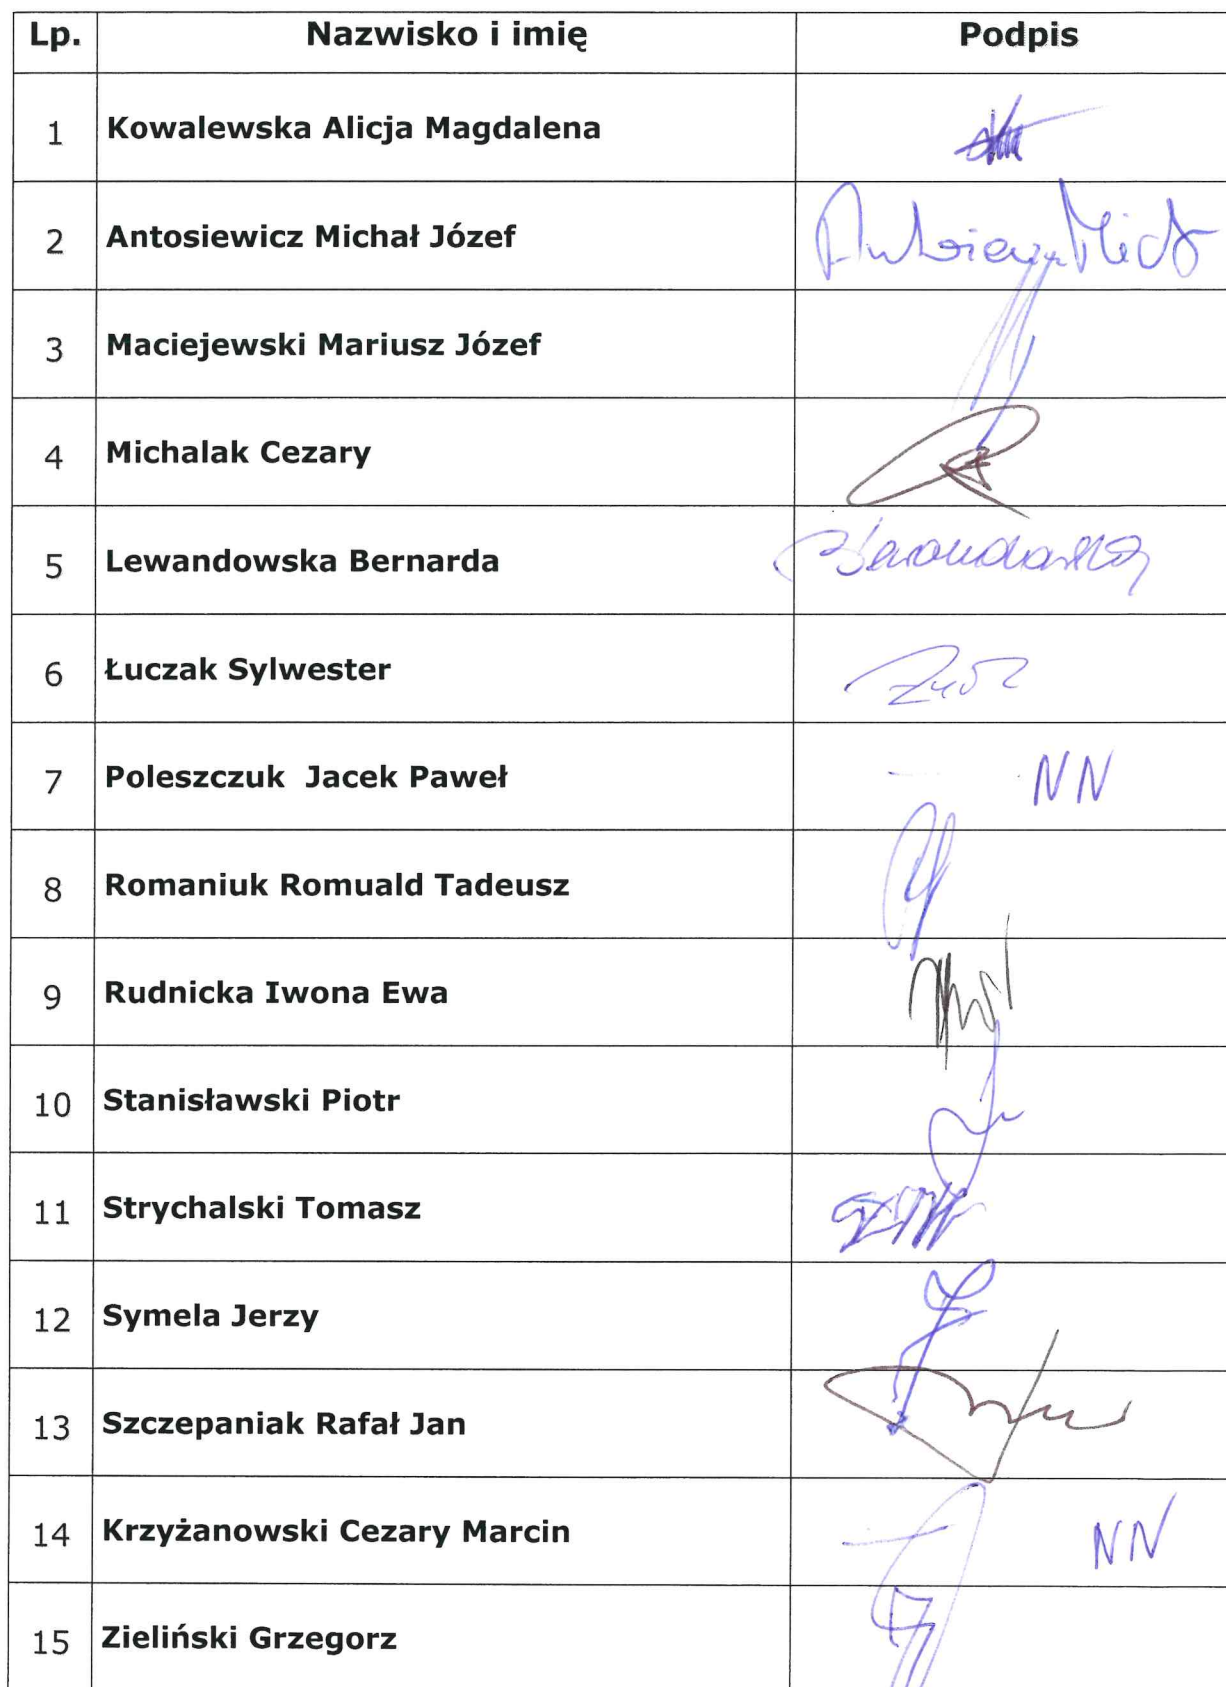 Lp. Nazwisko i imię Podpis
1 Kowalewska Alicja Magdalena
2 Antosiewicz Michał Józef
3 Maciejewski Mariusz Józef
4 Michalak Cezary
5 Lewandowska Bernarda
6 Łuczak Sylwester
7 Poleszczuk Jacek Paweł - NN
8 Romaniuk Romuald Tadeusz
9 Rudnicka Iwona Ewa
10 Stanisławski Piotr
11 Strychalski Tomasz
12 Symela Jerzy
13 Szczepaniak Rafał Jan
14 Krzyżanowski Cezary Marcin - NN
15 Zieliński Grzegorz